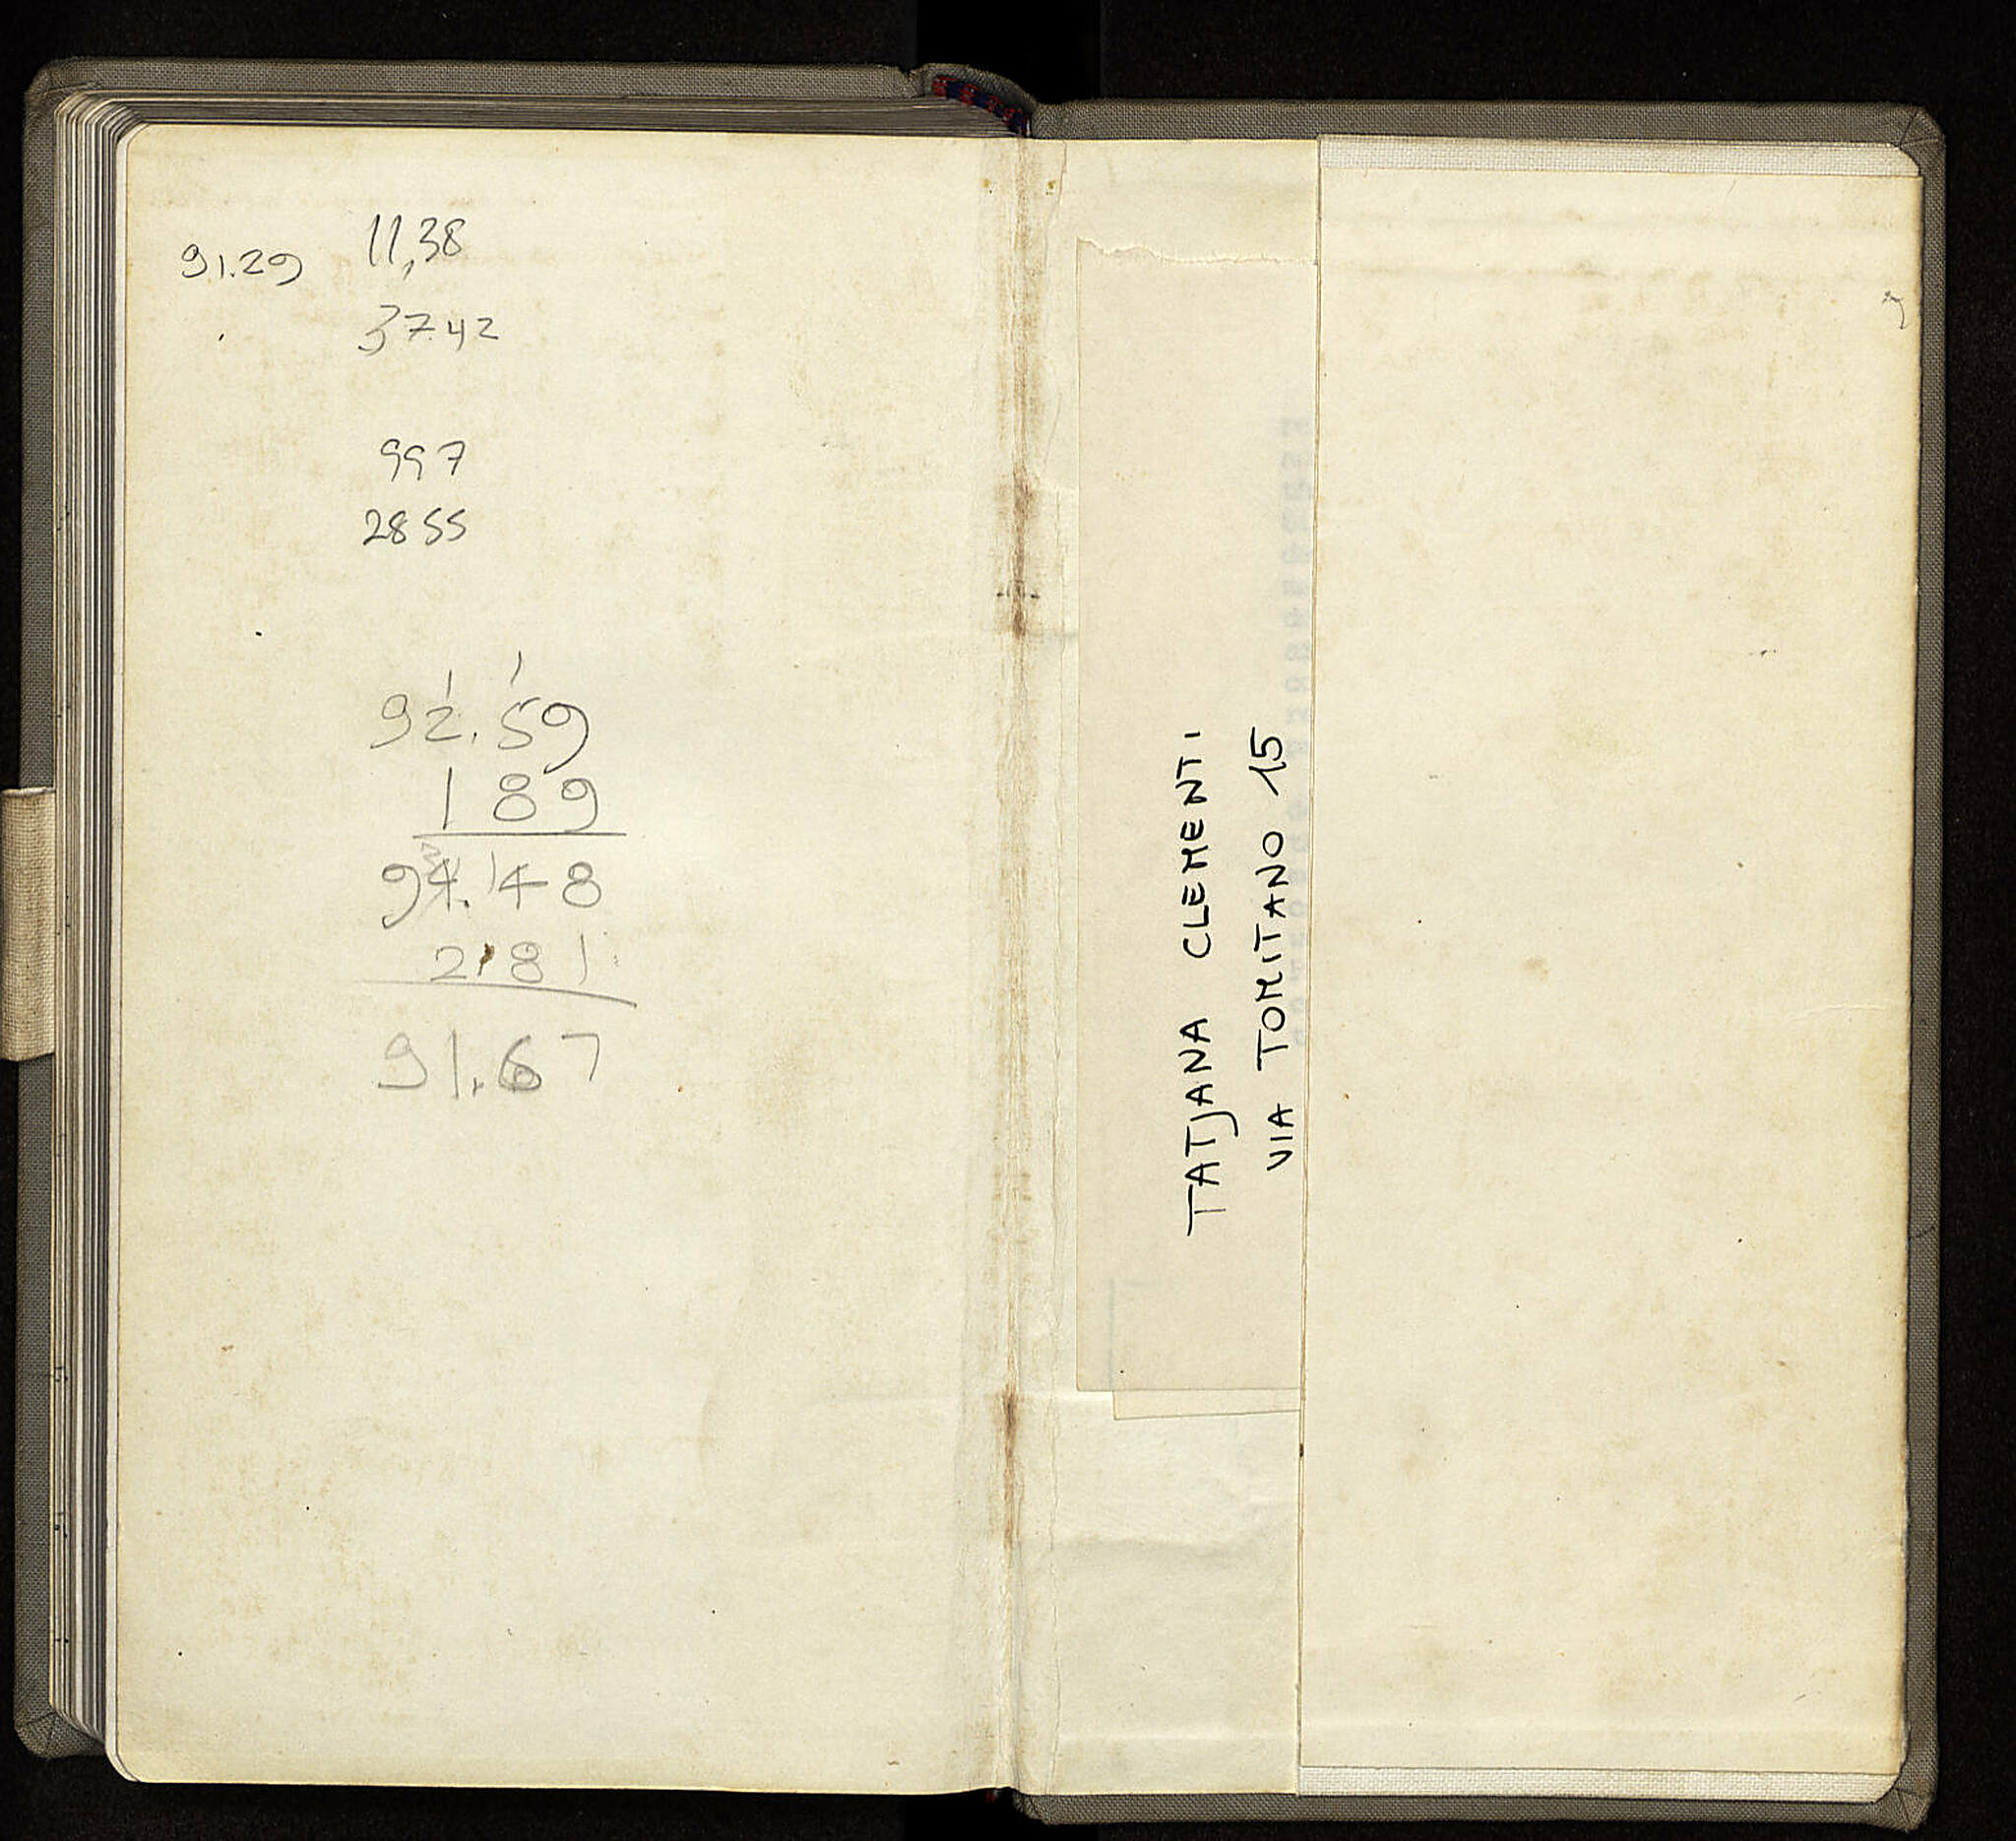 91.29 11,38
37.42
997
2855
92.59
189
94.148
2181
91.67
TATJANA CLEMENTI
VIA TOMITANO 15